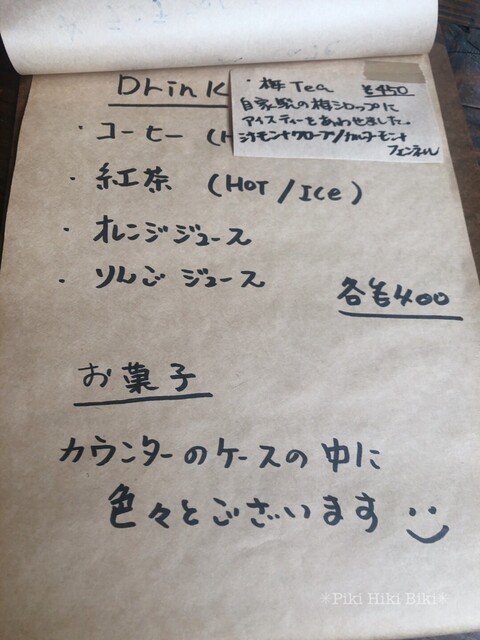 Drink
・梅Tea ¥450
自家製の梅シロップに
アイスティーをあわせました。
シナモン
フェンネル
・コーヒー (H
・紅茶 (HOT/Ice)
・オレンジジュース
・りんごジュース
各¥400
お菓子
カウンターのケースの中に
色々とございます
*Piki Hiki Biki*